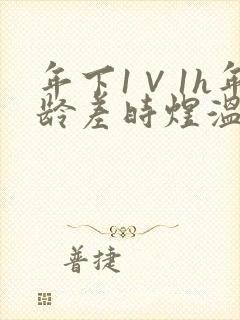 年下1V1h年
龄差时煜温
普捷